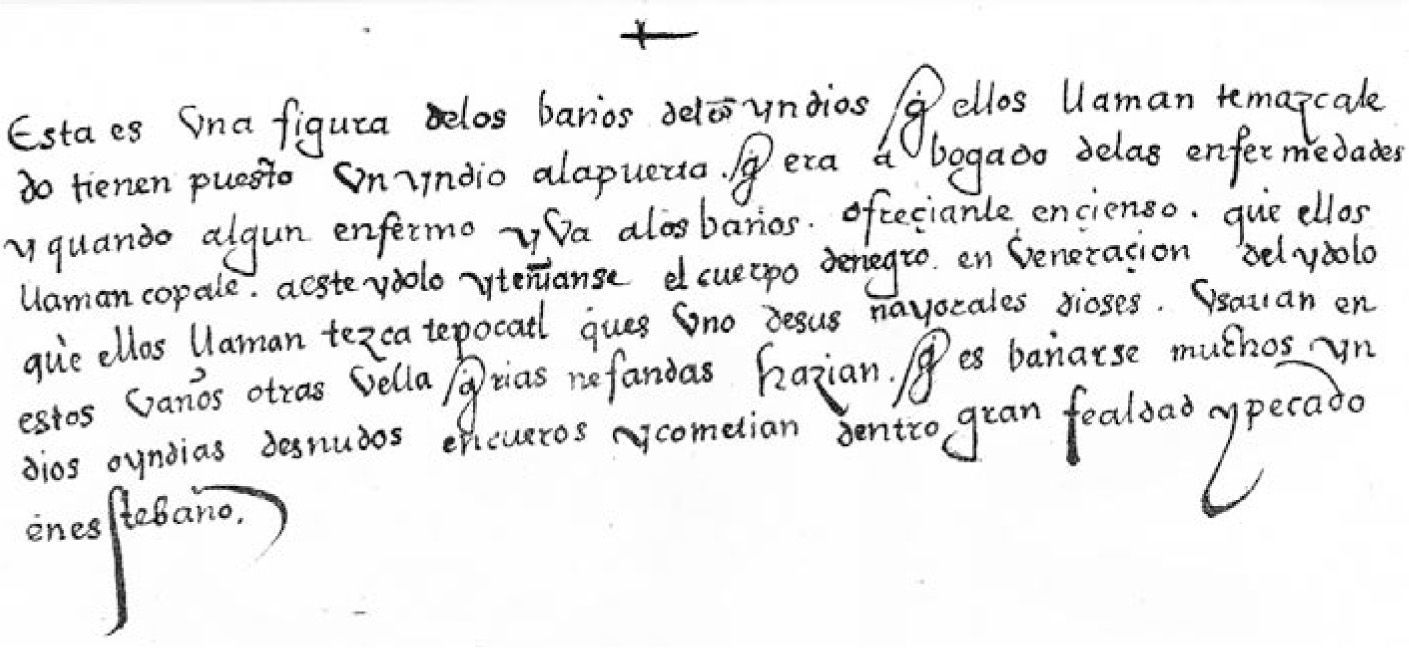 Esta es vna figura delos baños delos yndios q̃ ellos llaman temazcale
do tienen puesto vn yndio alapuerta. q̃ era abogado delas enfermedades
y quando algun enfermo yva alos baños. ofreçianle ençienso. que ellos
llaman copale. aeste ydolo yteñianse el cuerpo denegro. en veneraçion del ydolo
que ellos llaman tezcatepocatl ques vno desus mayorales dioses. vsauan en
estos vaños otras vella q̃rias nefandas hazian. q̃ es bañarse muchos yn
dios oyndias desnudos encueros ycometian dentro gran fealdad ypecado
eneste baño.